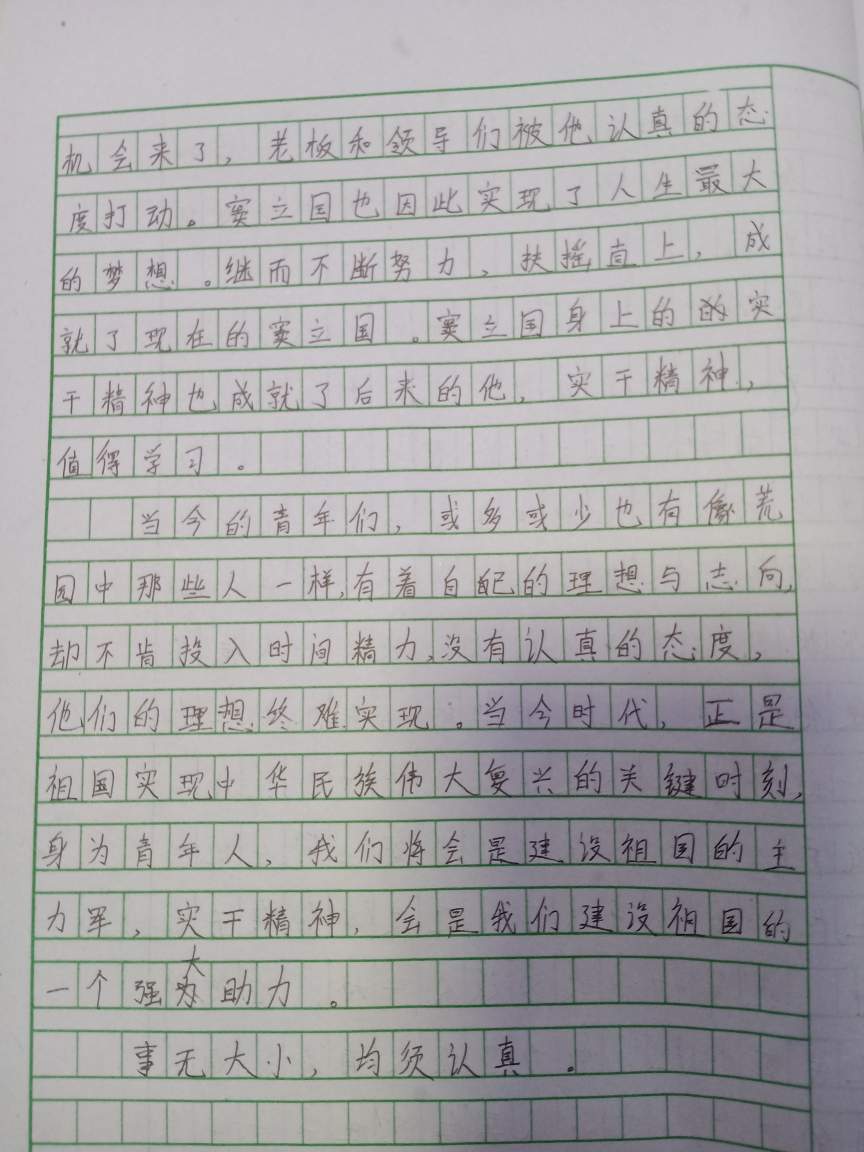 机会来了，老板和领导们被他认真的态
度打动。窦立国也因此实现了人生最大
的梦想。继而不断努力，扶摇直上，成
就了现在的窦立国。窦立国身上的实
干精神也成就了后来的他，实干精神，
值得学习。
当今的青年们，或多或少也有像荒
园中那些人一样，有着自己的理想与志向，
却不肯投入时间精力，没有认真的态度，
他们的理想终难实现。当今时代，正是
祖国实现中华民族伟大复兴的关键时刻，
身为青年人，我们将会是建设祖国的主
力军，实干精神，会是我们建设祖国的
一个强大助力。
事无大小，均须认真。